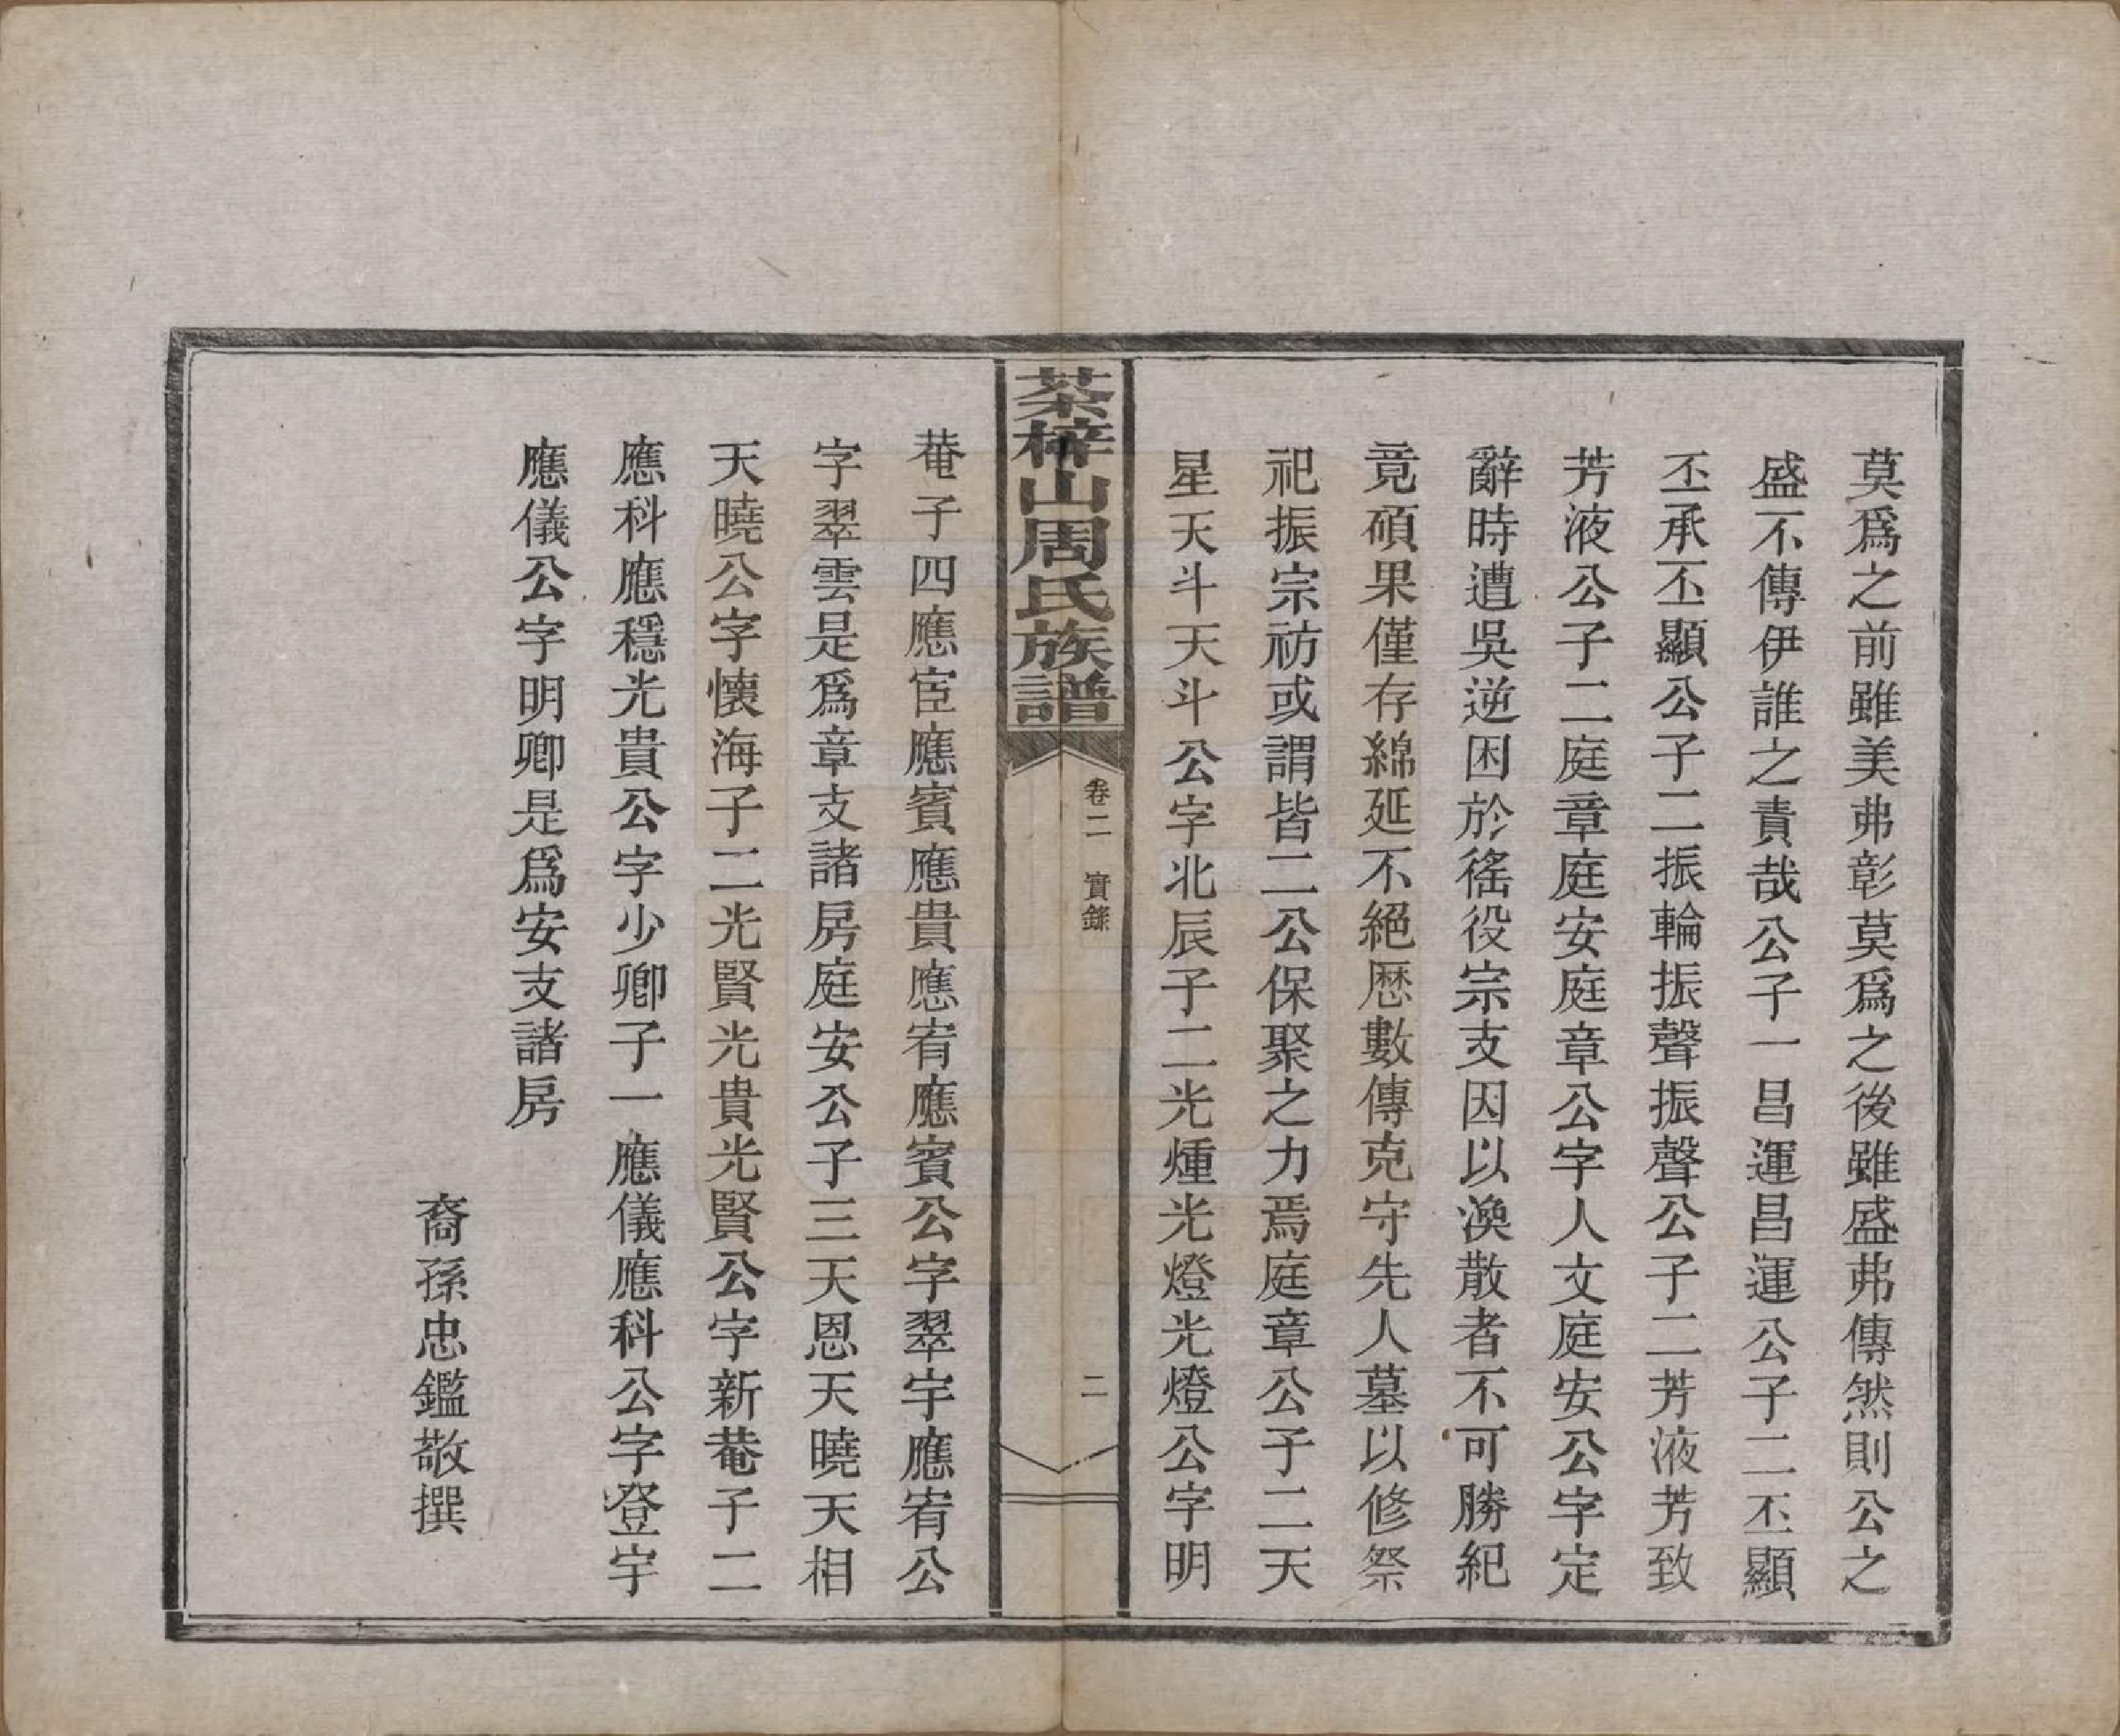 莫爲之前雖美弗彰莫爲之後雖盛弗傳然則公之
盛不傳伊誰之責哉公子一昌運昌運公子二丕顯
丕承丕顯公子二振輪振聲振聲公子二芳液芳致
芳液公子二庭章庭安庭章公字人文庭安公字定
辭時遭吳逆困於徭役宗支因以渙散者不可勝紀
竟碩果僅存綿延不絕歷數傳克守先人墓以修祭
祀振宗祊或謂皆二公保聚之力焉庭章公子二天
星天斗天斗公字北辰子二光煄光燈光燈公字明
茶梓山周氏族譜
卷二 實錄
二
菴子四應宦應賓應貴應宥應賓公字翠宇應宥公
字翠雲是爲章支諸房庭安公子三天恩天曉天相
天曉公字懷海子二光賢光貴光賢公字新菴子二
應科應穩光貴公字少卿子一應儀應科公字登宇
應儀公字明卿是爲安支諸房
裔孫忠鑑敬撰